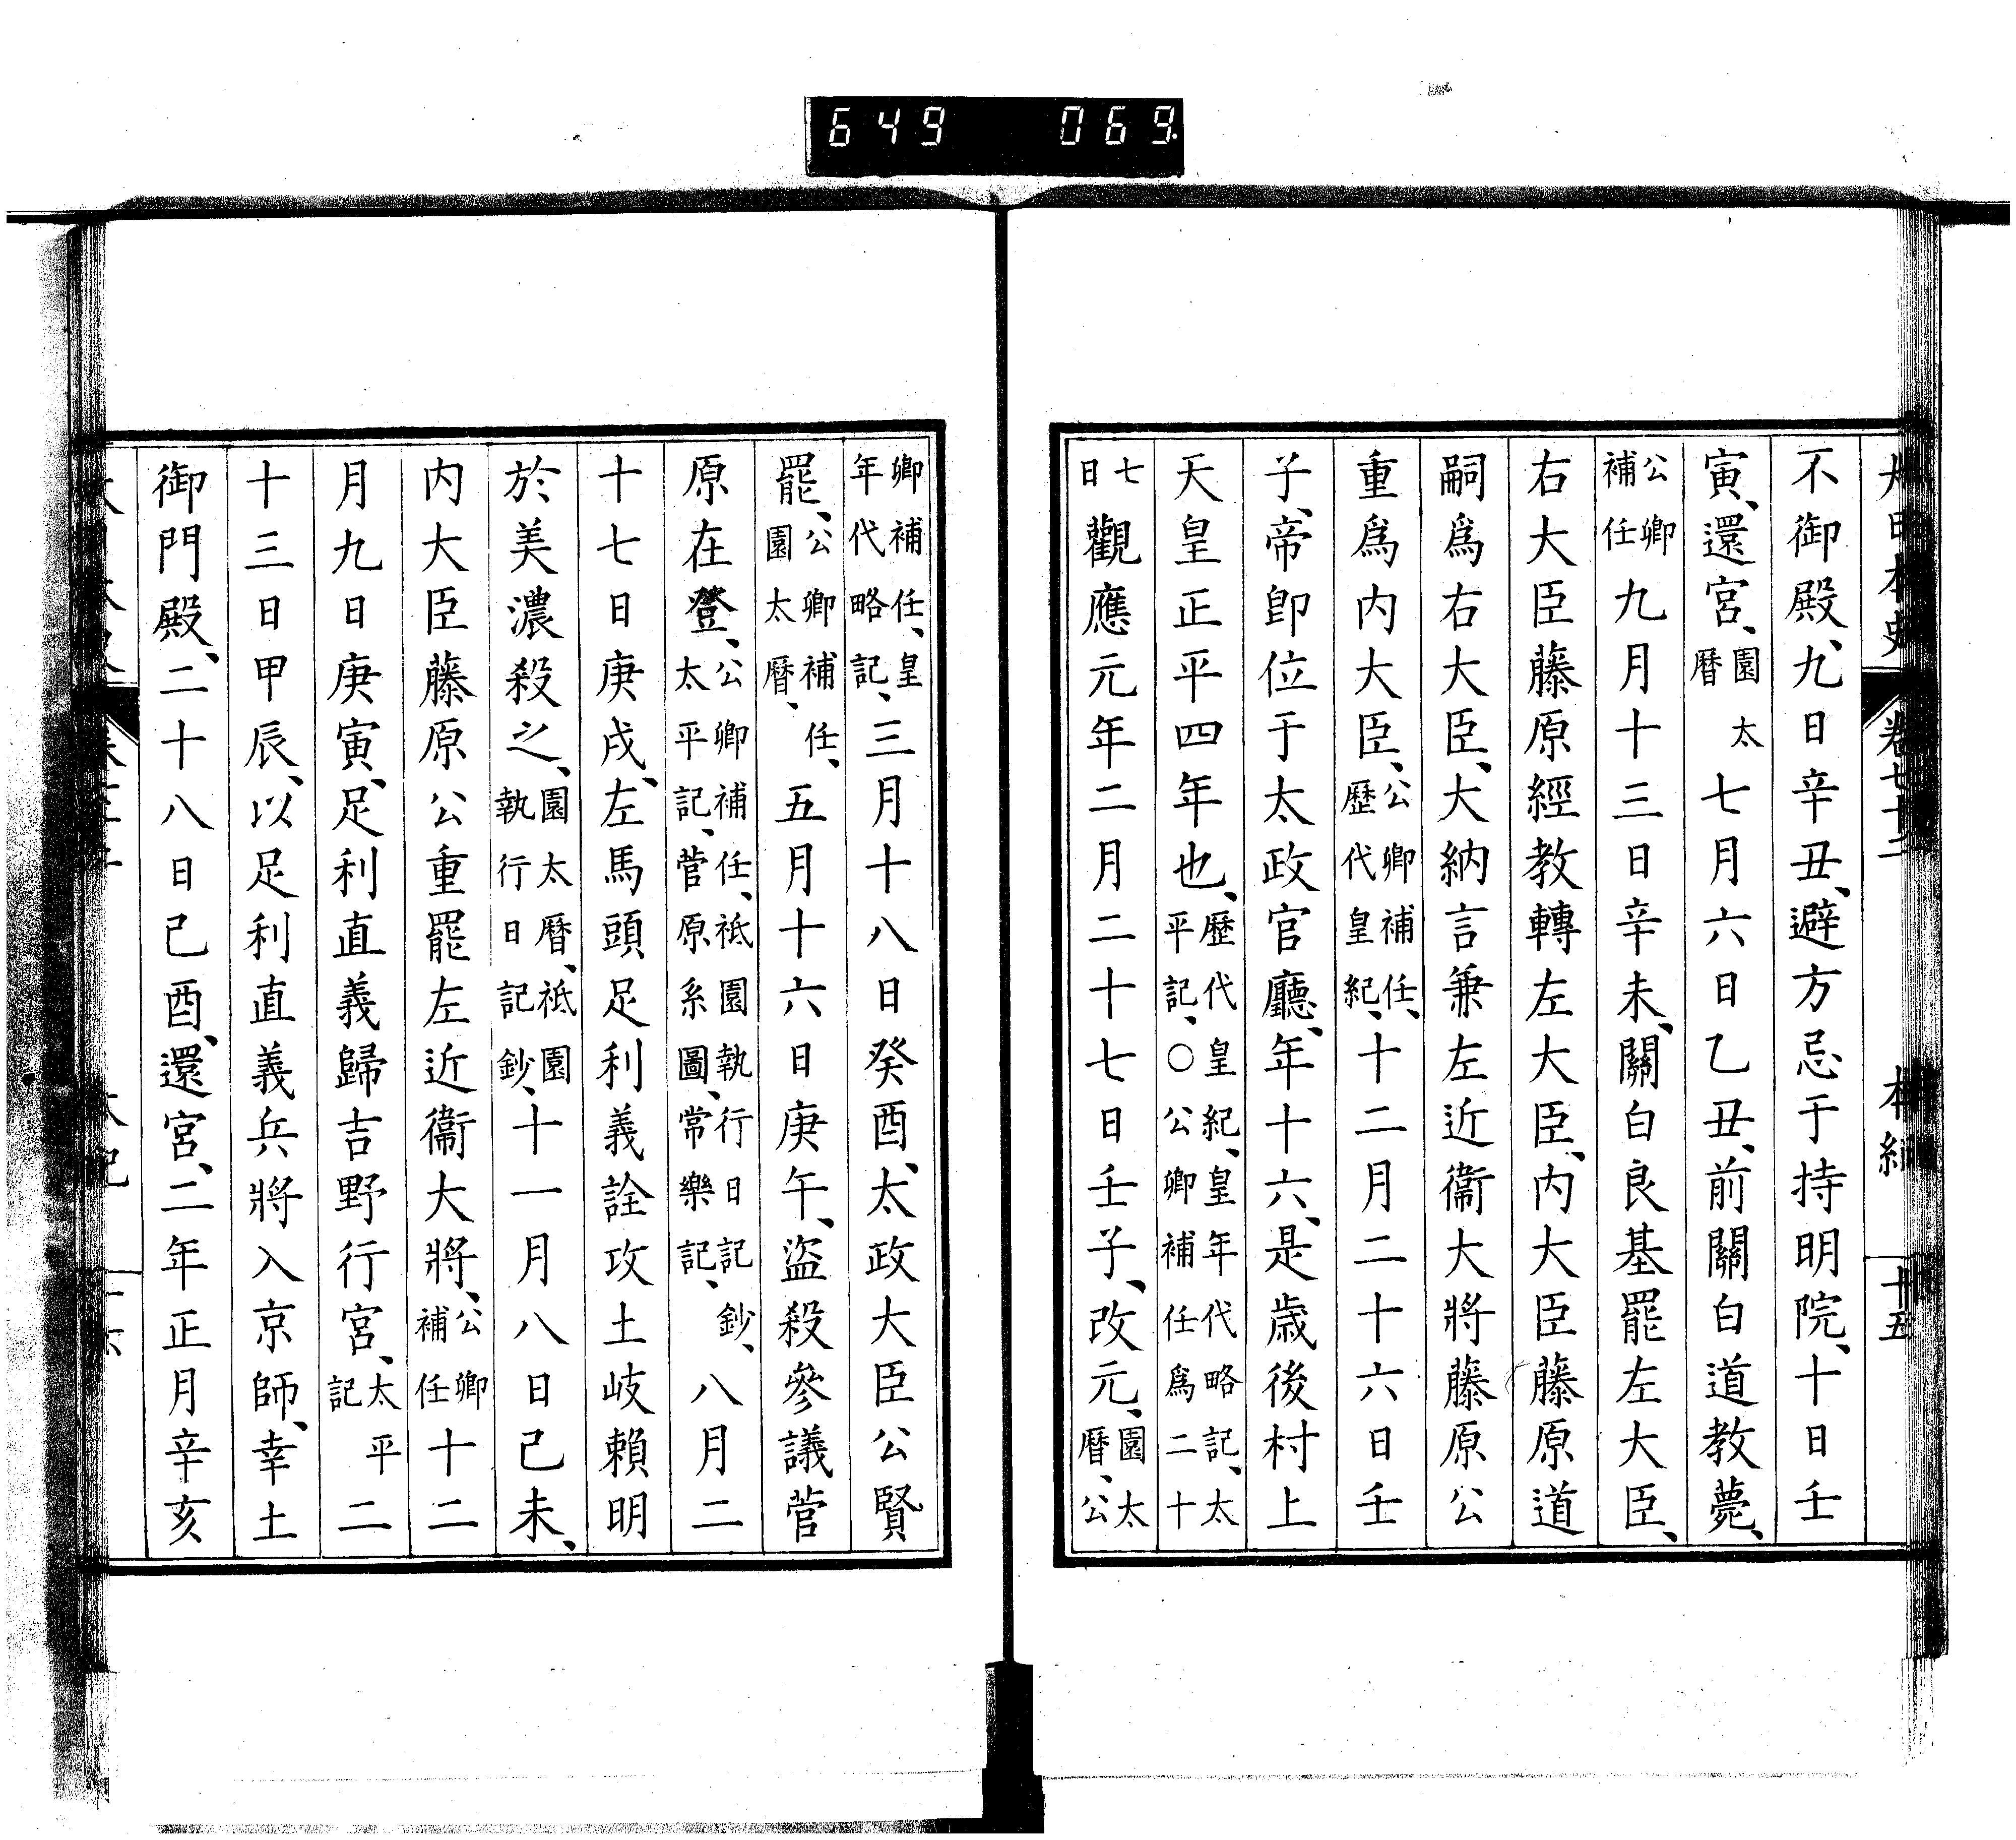 649 069
不御殿、九日辛丑、避方忌于持明院、十日壬
寅、還宮、園太暦七月六日乙丑、前關白道教薨、
公卿補任九月十三日辛未、關白良基罷左大臣、
右大臣藤原經教轉左大臣、内大臣藤原道
嗣爲右大臣、大納言兼左近衞大將藤原公
重爲内大臣、公卿補任、歷代皇紀、十二月二十六日壬
子、帝卽位于太政官廳、年十六、是歲後村上
天皇正平四年也、歷代皇紀、皇年代略記、太平記、○公卿補任爲二十
七日觀應元年二月二十七日壬子、改元、園太暦、公
卿補任、皇年代略記、三月十八日癸酉、太政大臣公賢
罷、公卿補任、園太暦、五月十六日庚午、盜殺參議菅
原在登、公卿補任、祇園執行日記鈔、太平記、菅原系圖、常樂記、八月二
十七日庚戌、左馬頭足利義詮攻土岐賴明
於美濃殺之、園太暦、祇園執行日記鈔、十一月八日己未、
内大臣藤原公重罷左近衞大將、公卿補任十二
月九日庚寅、足利直義歸吉野行宮、太平記二
十三日甲辰、以足利直義兵將入京師、幸土
御門殿、二十八日己酉、還宮、二年正月辛亥